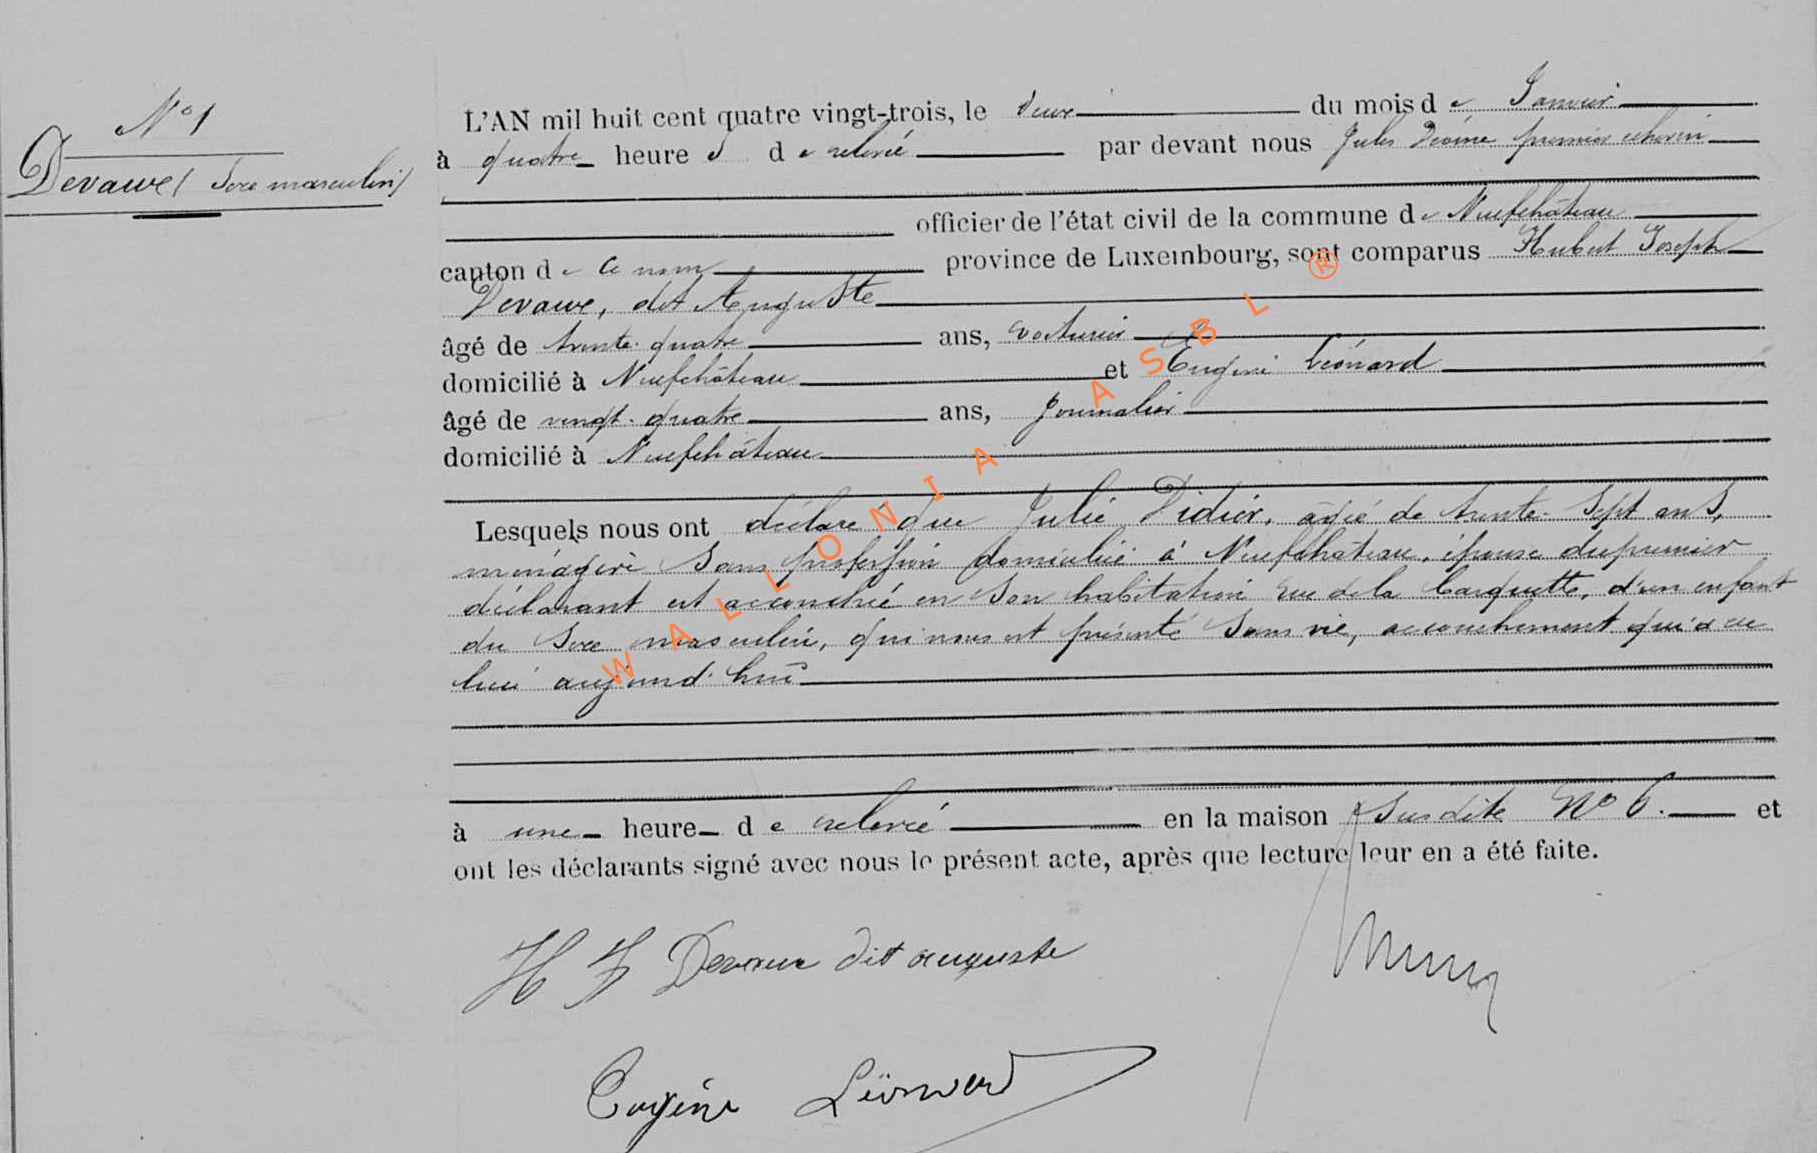 N° 1
Devaux (Sexe masculin)
L'AN mil huit cent quatre vingt-trois, le deux du mois de Janvier
à quatre heures de relevé par devant nous Jules premier échevin
officier de l'état civil de la commune de Neufchâteau
canton de ce nom province de Luxembourg, sont comparus Hubert Joseph
Devaux, dit Auguste
âgé de trente-quatre ans, voiturier
domicilié à Neufchâteau et Eugène Léonard
âgé de vingt-quatre ans, Journalier
domicilié à Neufchâteau
Lesquels nous ont déclaré que Julie Didier, agée de trente-sept ans,
ménagère sans profession domiciliée à Neufchâteau, épouse du premier
déclarant est accouchée en son habitation rue de la d'un enfant
du sexe masculin, qui nous est présenté sans vie, accouchement qui a eu
lieu aujourd'hui
à une heure de relevée en la maison susdite N° 6. et
ont les déclarants signé avec nous le présent acte, après que lecture leur en a été faite.
H J Devaux dit auguste
Eugène Léonard
WALLONIA ASBL ®